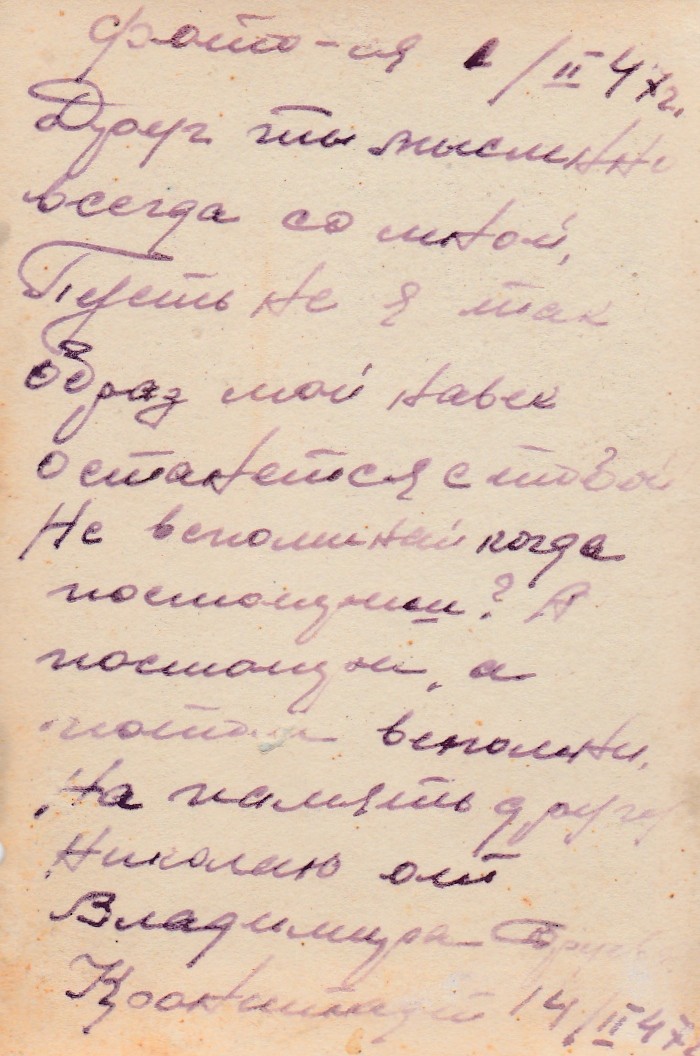 фото-ия 1/II 47г.
Друг ты мысленно
всегда со мной,
Пусть не я так
образ мой навек
останется с тобой
Не вспоминай когда
посмотриш? А
посмотри, а
потом вспомни.
На память другу
Николаю от
Владимира
Кронштадт 14/II 47г